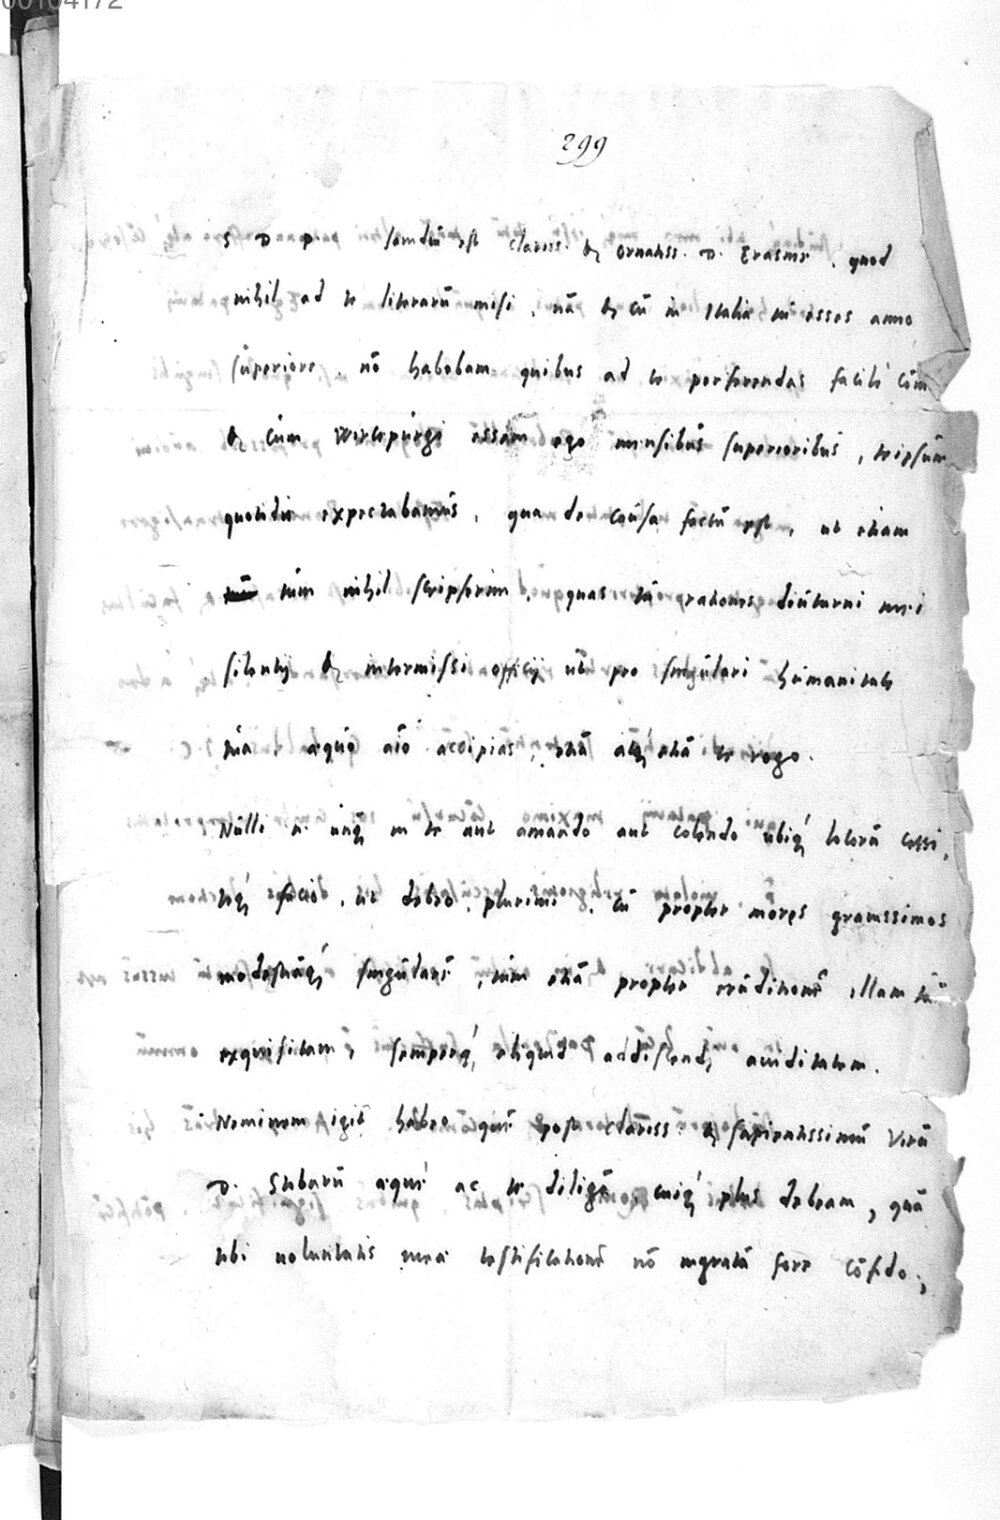 00104172
299
S. D. P. Iamdiu est clariss. & ornatiss. D. Erasme, quod
nihil ad te literarũ misi, nã & cũ in Italia tu esses anno
superiore, nõ habebam quibus ad te perferendas facilè cõm
& cùm Wircepurgi essem ego mensibus superioribus, teipsum
quotidie expectabamus, qua de causa factũ est, ut etiam
tum nihil scripserim, quas tu rationes diuturni mei
silentij & intermissi officij ut pro singulari humanitate
tua, aequo aĩo accipias, etiã atq; etiã te rogo.
Nulli n. unq̃ in te aut amando aut colendo ubiq; locorũ cessi,
teq; facio, ut debeo, plurimi, cũ propter mores gratissimos
modestiãq; singularẽ, tum etiã propter eruditionẽ illam tuã
exquisitam, semperq; aliquid addiscendi auiditatem.
Neminem igit habeo quẽ post clariss. & sapientissimũ virũ
D. Stibarũ aequè ac te diligã, cuiq; plus debeam, quã
tibi uoluntatis meae testificationẽ nõ ingratã fore cõfido,